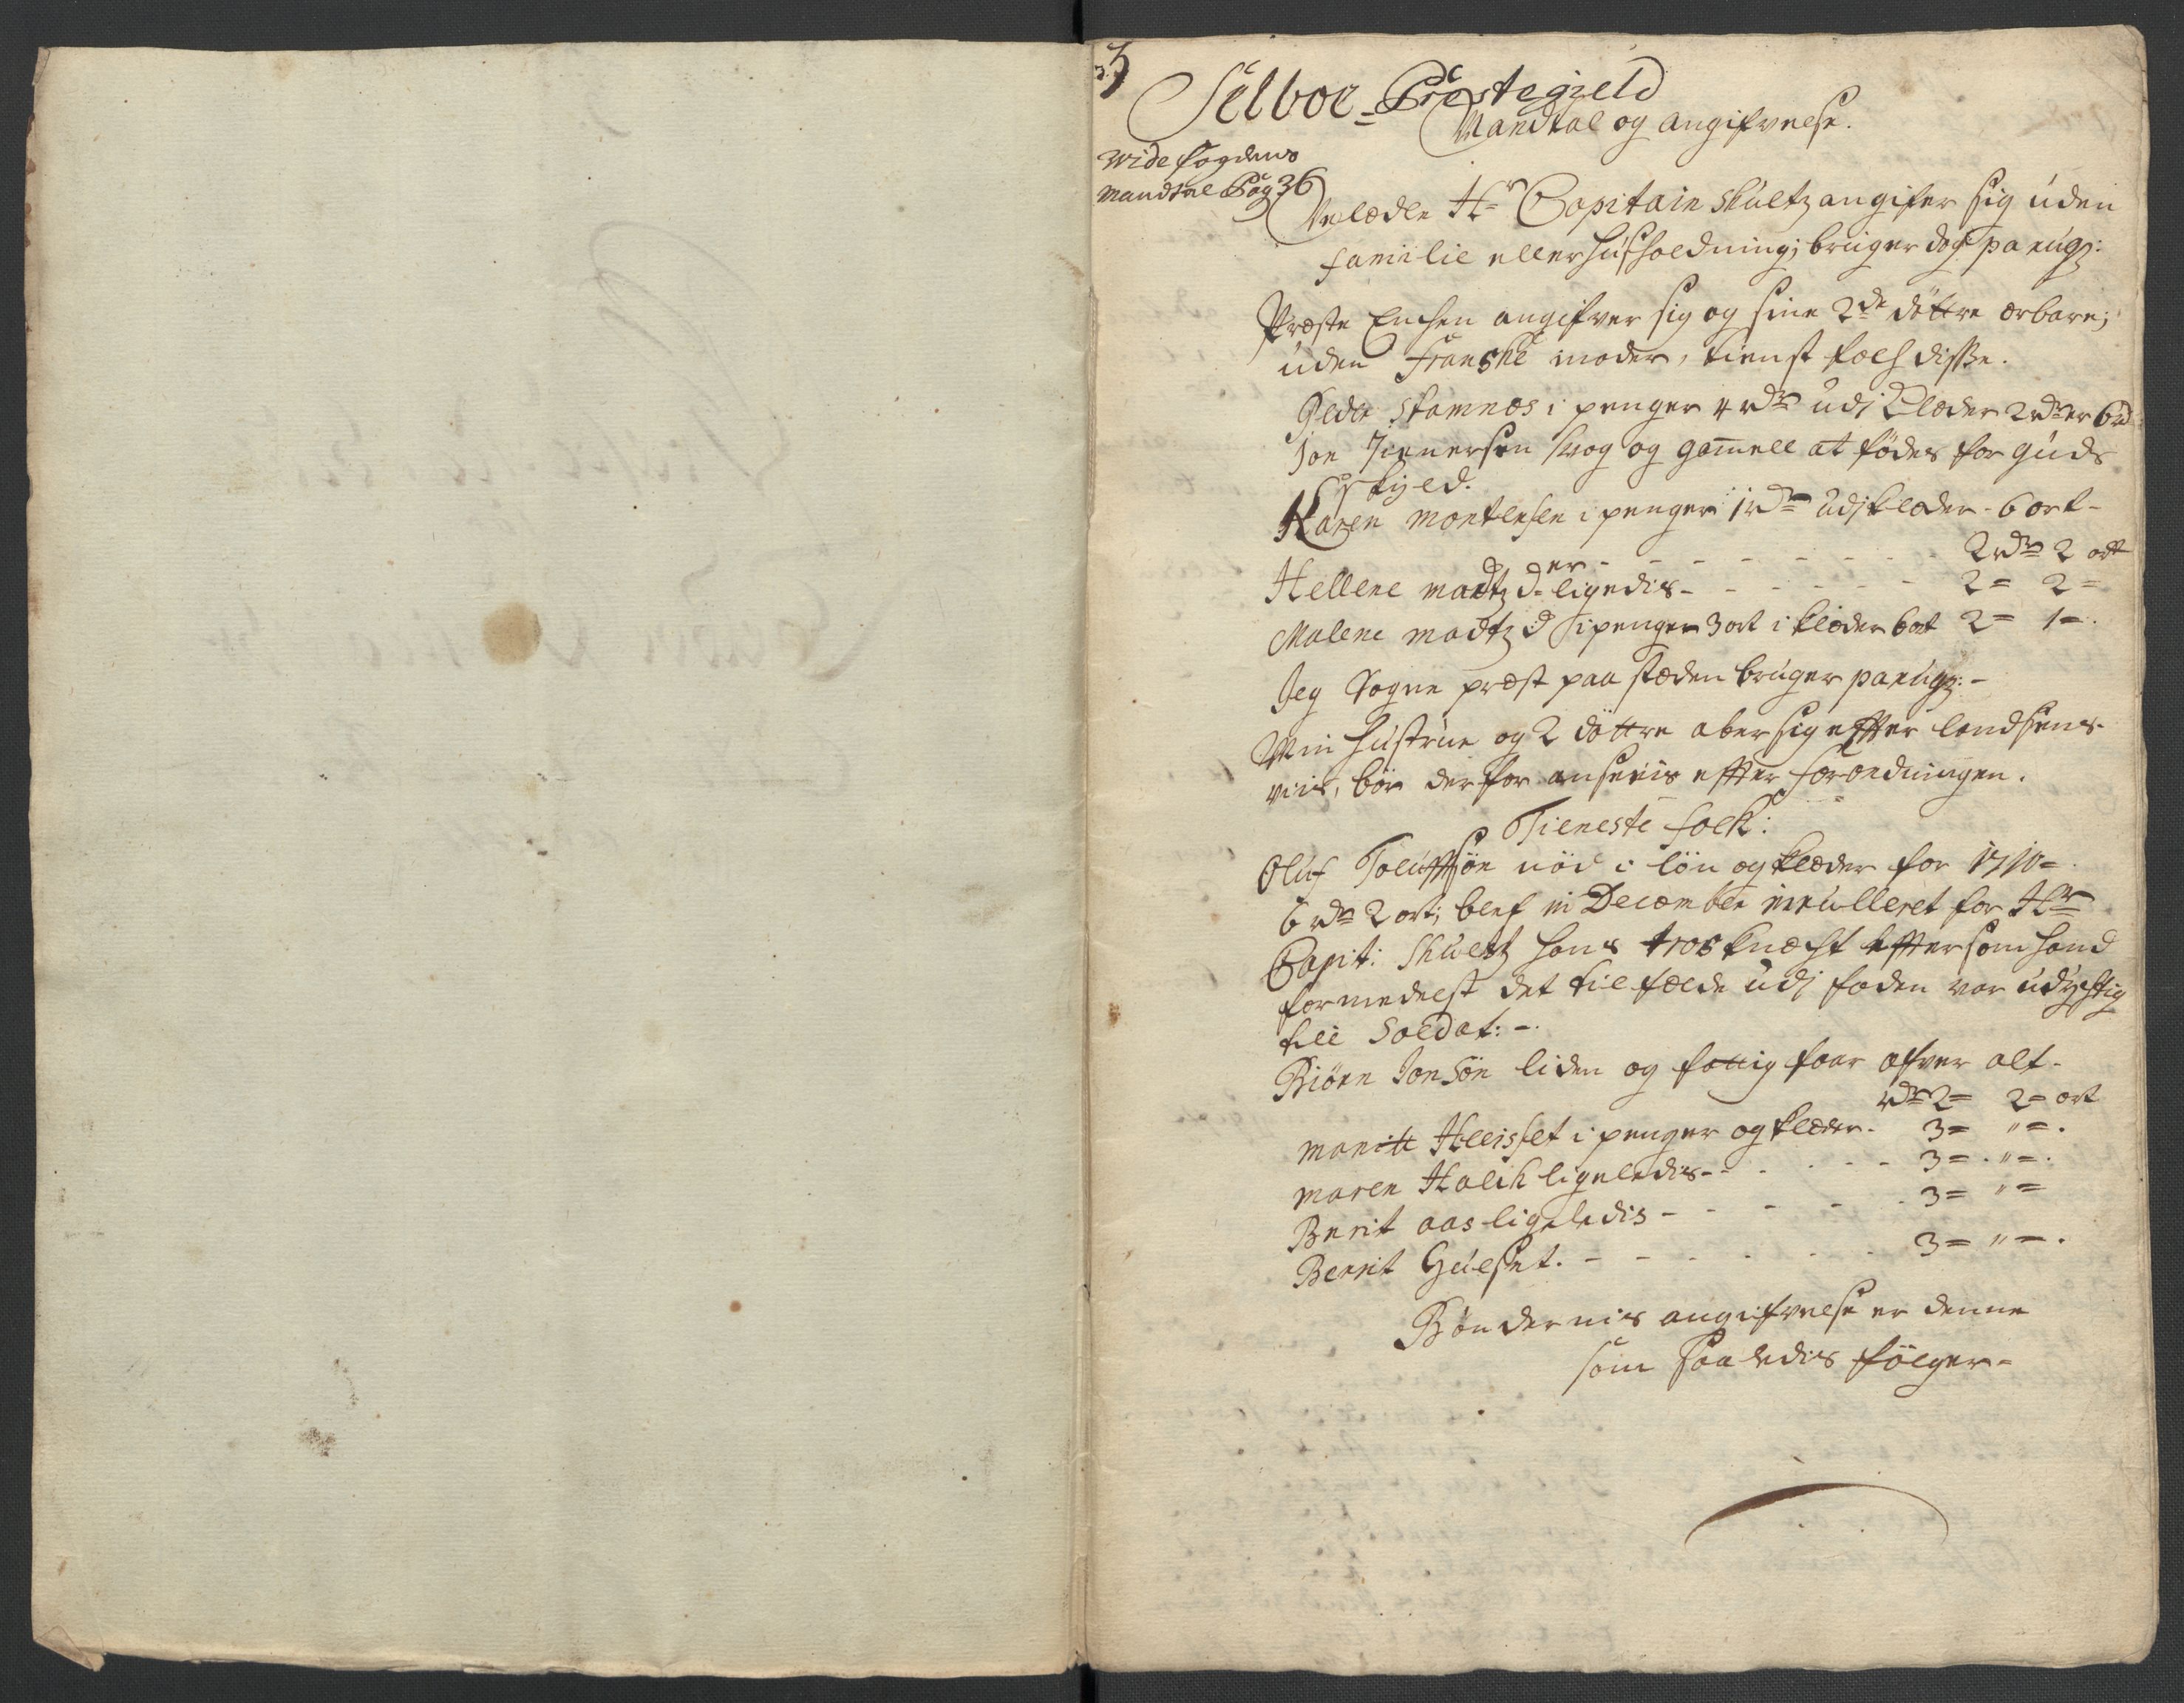 3
Selboe Præstegield
Mandtal og angifvelse.
vide fogdens
mandtal Pag 36
Velædle Hr Capitain Skultz angifver sig uden
familie eller husholdning; bruger dog paruqz:
Præste Enchen angifver sig og sine 2de döttre ærbare;
uden Franske moder, tienst folch disse.
Peder Stamnes i penger 4 rdr udj Klæder 2 rdr er 6 rd
Jon svog og gamell at födes for guds
skyld.
Karen i penger 1 rdr udj klæder - 6 ort -
er - - - - - - - 2 rdr 2 ort
Hellene madtz d. ligedis - - - - - 2 = 2 =
Malene madtz d i penger 3 ort i klæder 6 ort 2 = 1 =.
Jeg Sogne præst paa stæden bruger paruqz: -
Min hustrue og 2 döttre aber sig effter landsens
viis, bör derfor anseeis effter forordningen.
Tieneste folk:
Oluf sön nöd i lön og klæder for 1710 =
6 rdr 2 ort; blef in December enrulleret for Hr
Capit: Skultz hans trosknecht effter som hand
formedelst det tilfælde udj foden var udychtig
till Soldat: -.
Biörn Jonsön liden og fattig faar ofver alt -
rdr 2 = 2 = ort
marit i penger og klæder. 3 = " =.
maren ligeledis - - . . - - 3 = . " =.
Berit aas ligeledis - - - - . 3 = " =
Berrit Gulset. - - - . . - 3 = " = .
Böndernis angifvelse er denne
som saaledis fölger -